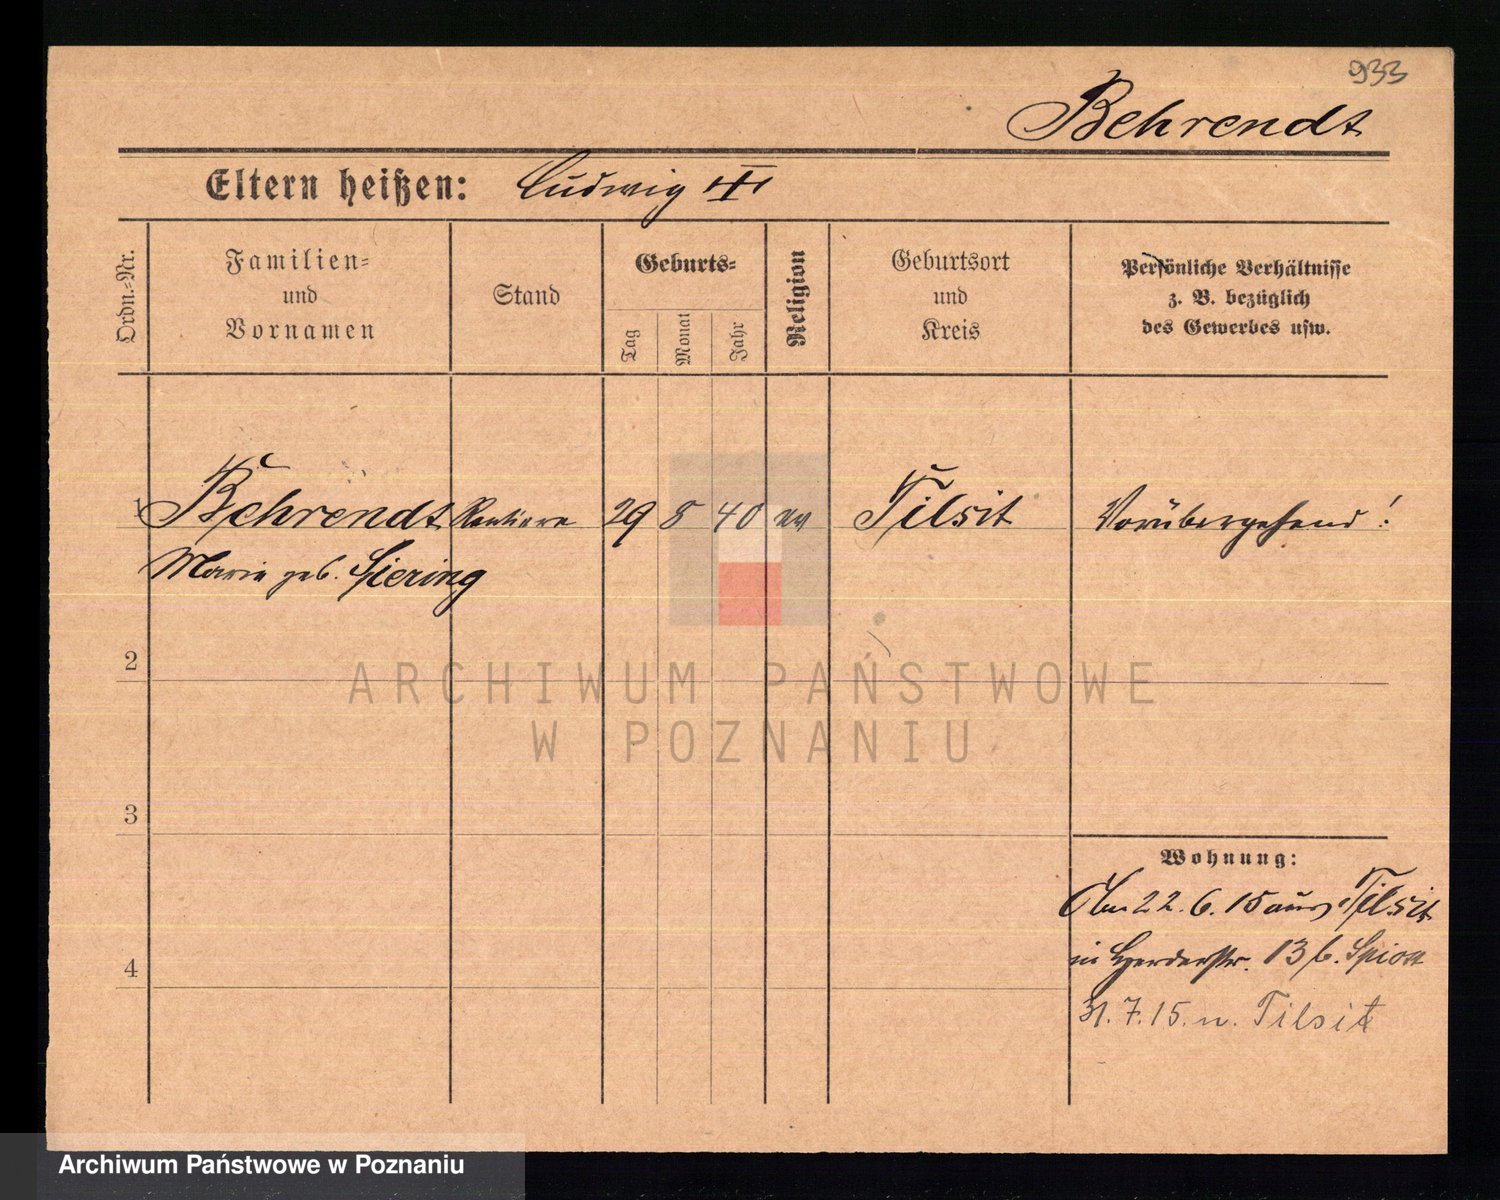 933
Behrendt
Eltern heißen: Ludwig
Ordn.-Nr.
Familien-
und
Vornamen
Stand
Geburts-
Tag
Monat
Jahr
Religion
Geburtsort
und
Kreis
Persönliche Verhältnisse
z. B. bezüglich
des Gewerbes usw.
1 Behrendt Rentiere 29 8 40 ev Tilsit Vorübergehend!
Marie geb. Siering
2
ARCHIWUM PAŃSTWOWE
W POZNANIU
3
Wohnung:
Am 22.6.15 aus Tilsit
in Herderstr. 13 b.
4
31.7.15. n. Tilsit
Archiwum Państwowe w Poznaniu